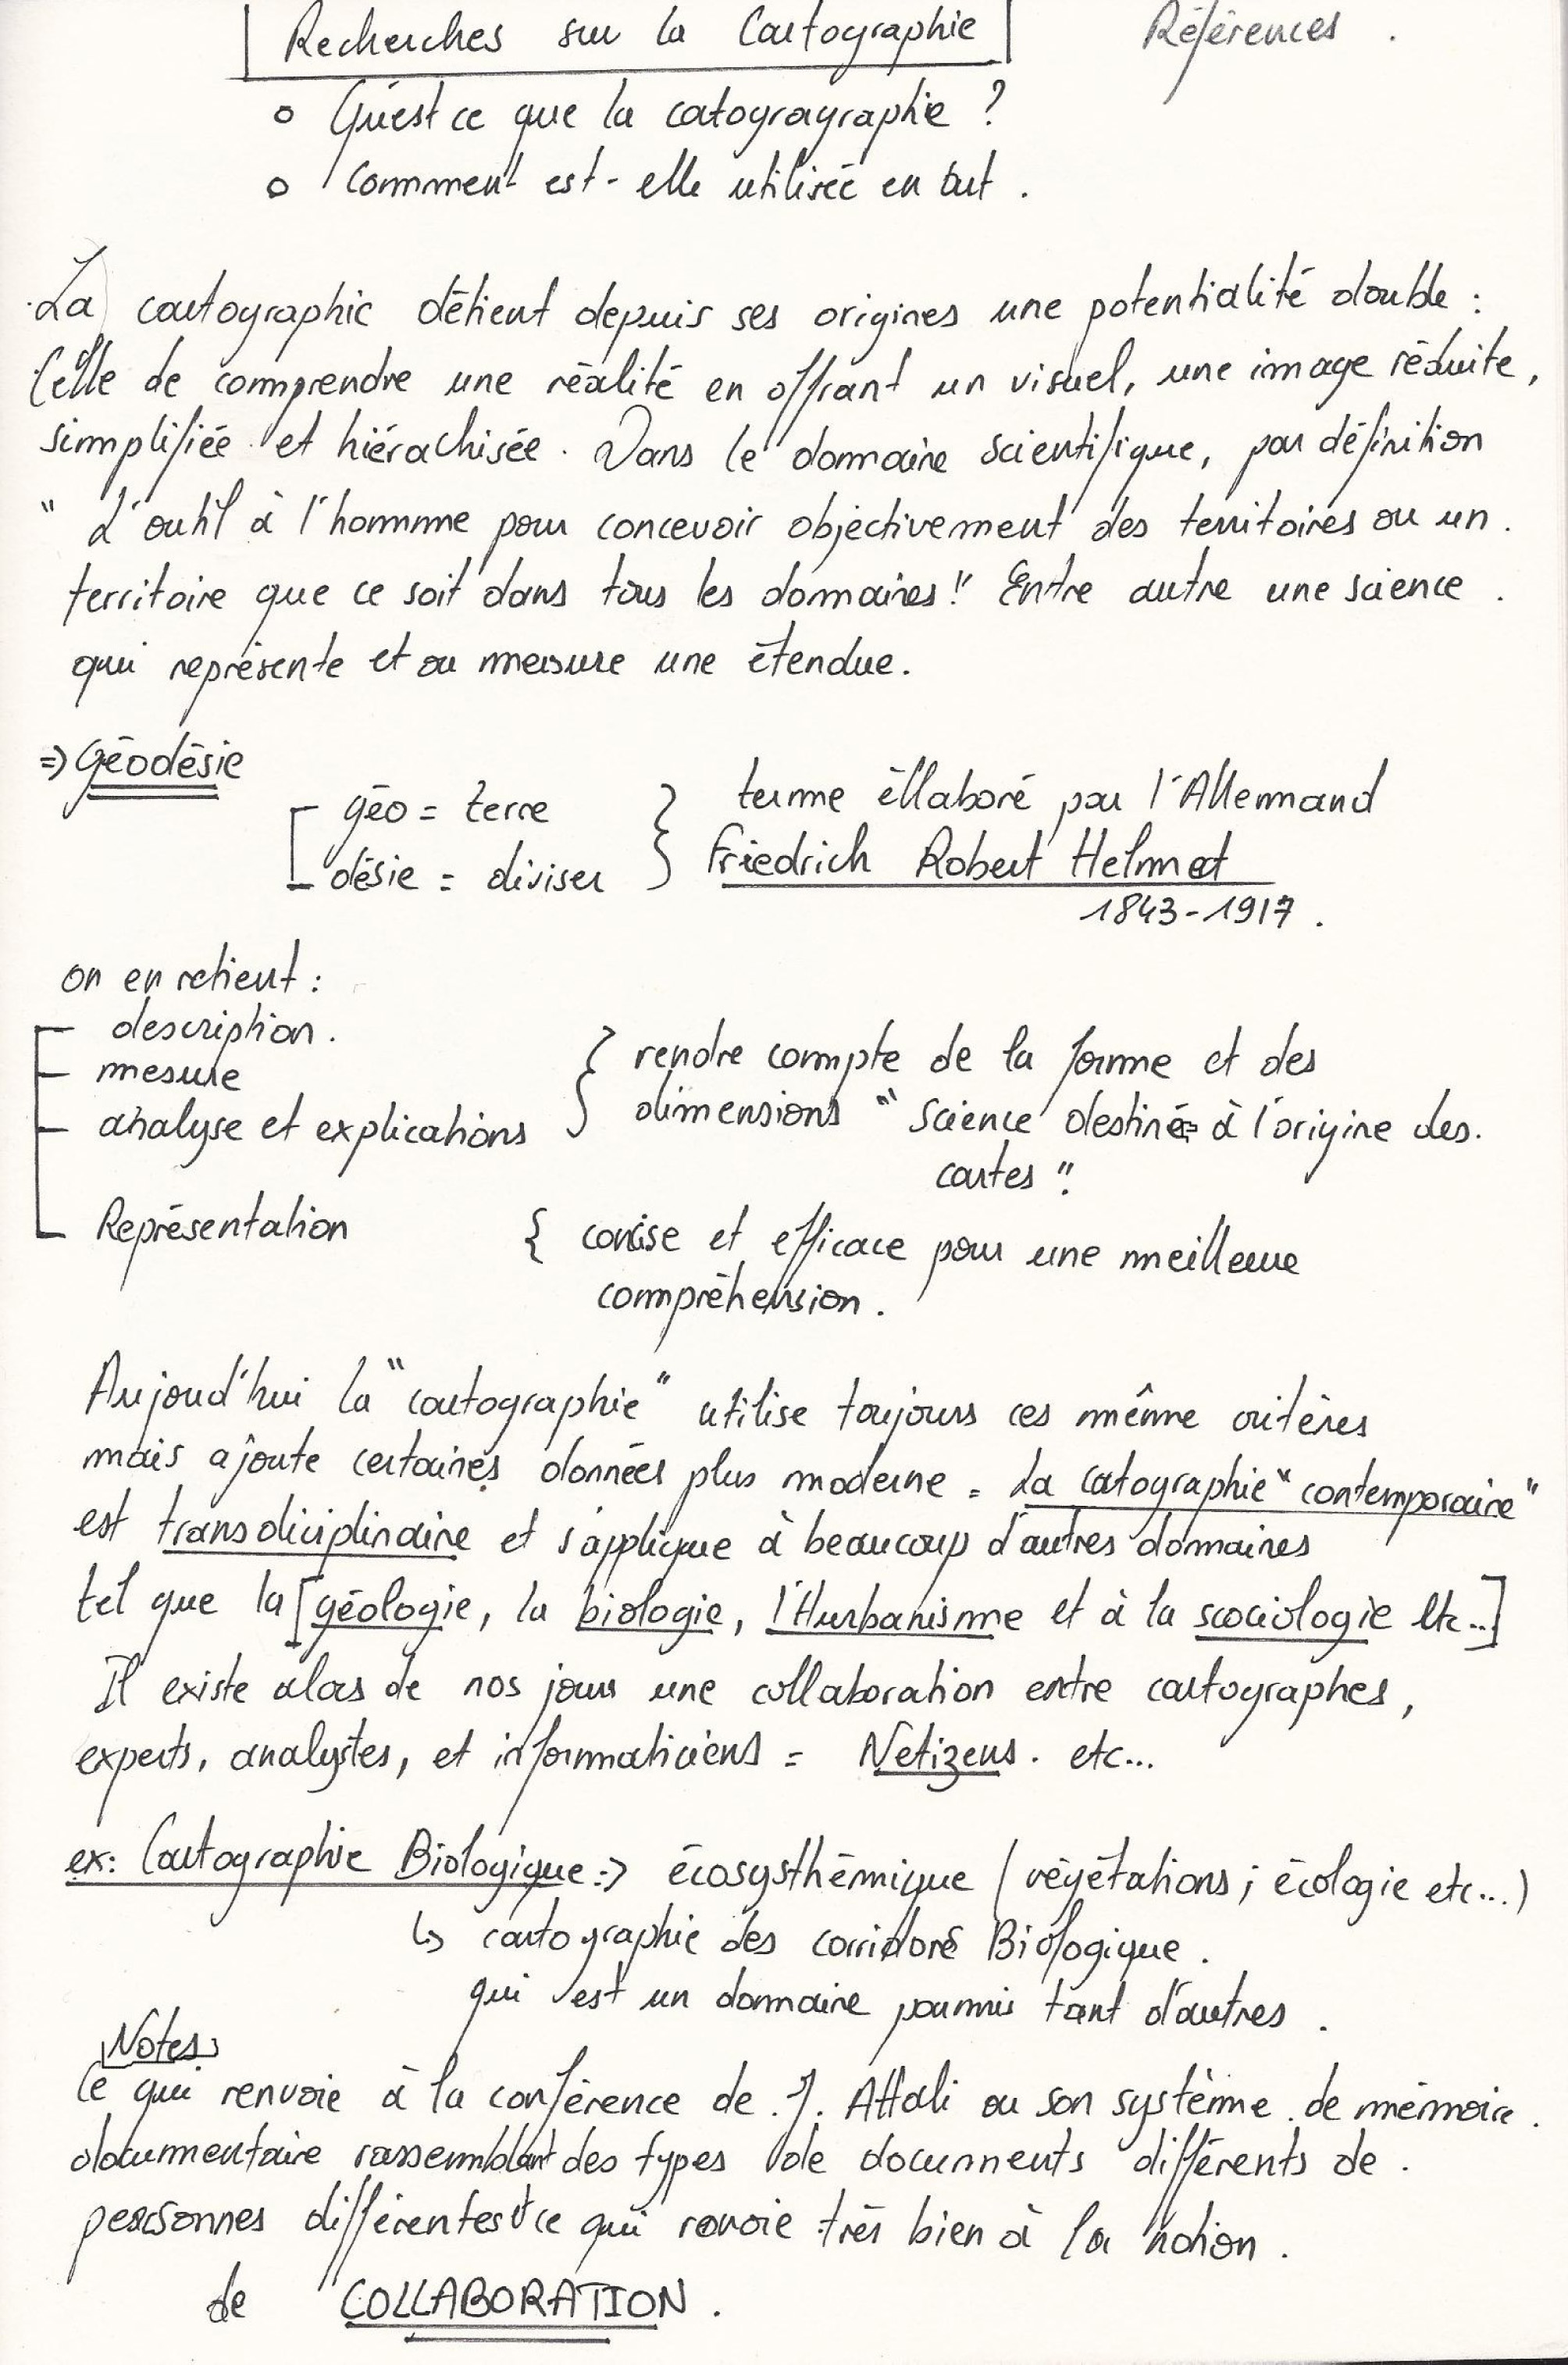 Recherches sur la Cartographie
Références .
o Qu'est ce que la catogragraphie ?
o Comment est-elle utilisée en but .
La cartographie détient depuis ses origines une potentialité double :
Celle de comprendre une réalité en offrant un visuel, une image réduite,
simplifiée et hiérachisée. Dans le domaine scientifique, par définition
" L'outil à l'homme pour concevoir objectivement des territoires ou un .
territoire que ce soit dans tous les domaines!" Entre autre une science .
qui représente et ou mesure une étendue.
=> Géodésie
géo = terre
désie = diviser
terme éllaboré par l'Allemand
Friedrich Robert Helmet
1843-1917 .
on en retient :
description.
mesure
analyse et explications
rendre compte de la forme et des
dimensions " science destinée à l'origine des.
cartes ".
Représentation
{ concise et efficace pour une meilleure
compréhension .
Aujoud'hui la "cartographie" utilise toujours ces même critères
mais ajoute certaines données plus moderne = La catographie "contemporaine"
est transdiciplinaire et s'applique à beaucoup d'autres domaines
tel que la [géologie, la biologie, l'Hurbanisme et à la scociologie etc...]
Il existe alors de nos jours une collaboration entre cartographes,
experts, analystes, et informaticiens = Netizens. etc...
ex: Cartographie Biologique => écosysthémique (végétations; écologie etc...)
↳ cartographie des corridors Biologique .
qui est un domaine parmis tant d'autres .
Notes
Ce qui renvoie à la conférence de J. Attali ou son système de mémoire .
documentaire rassemblant des types de documents différents de .
personnes différentes ce qui renvoie très bien à la notion .
de COLLABORATION .